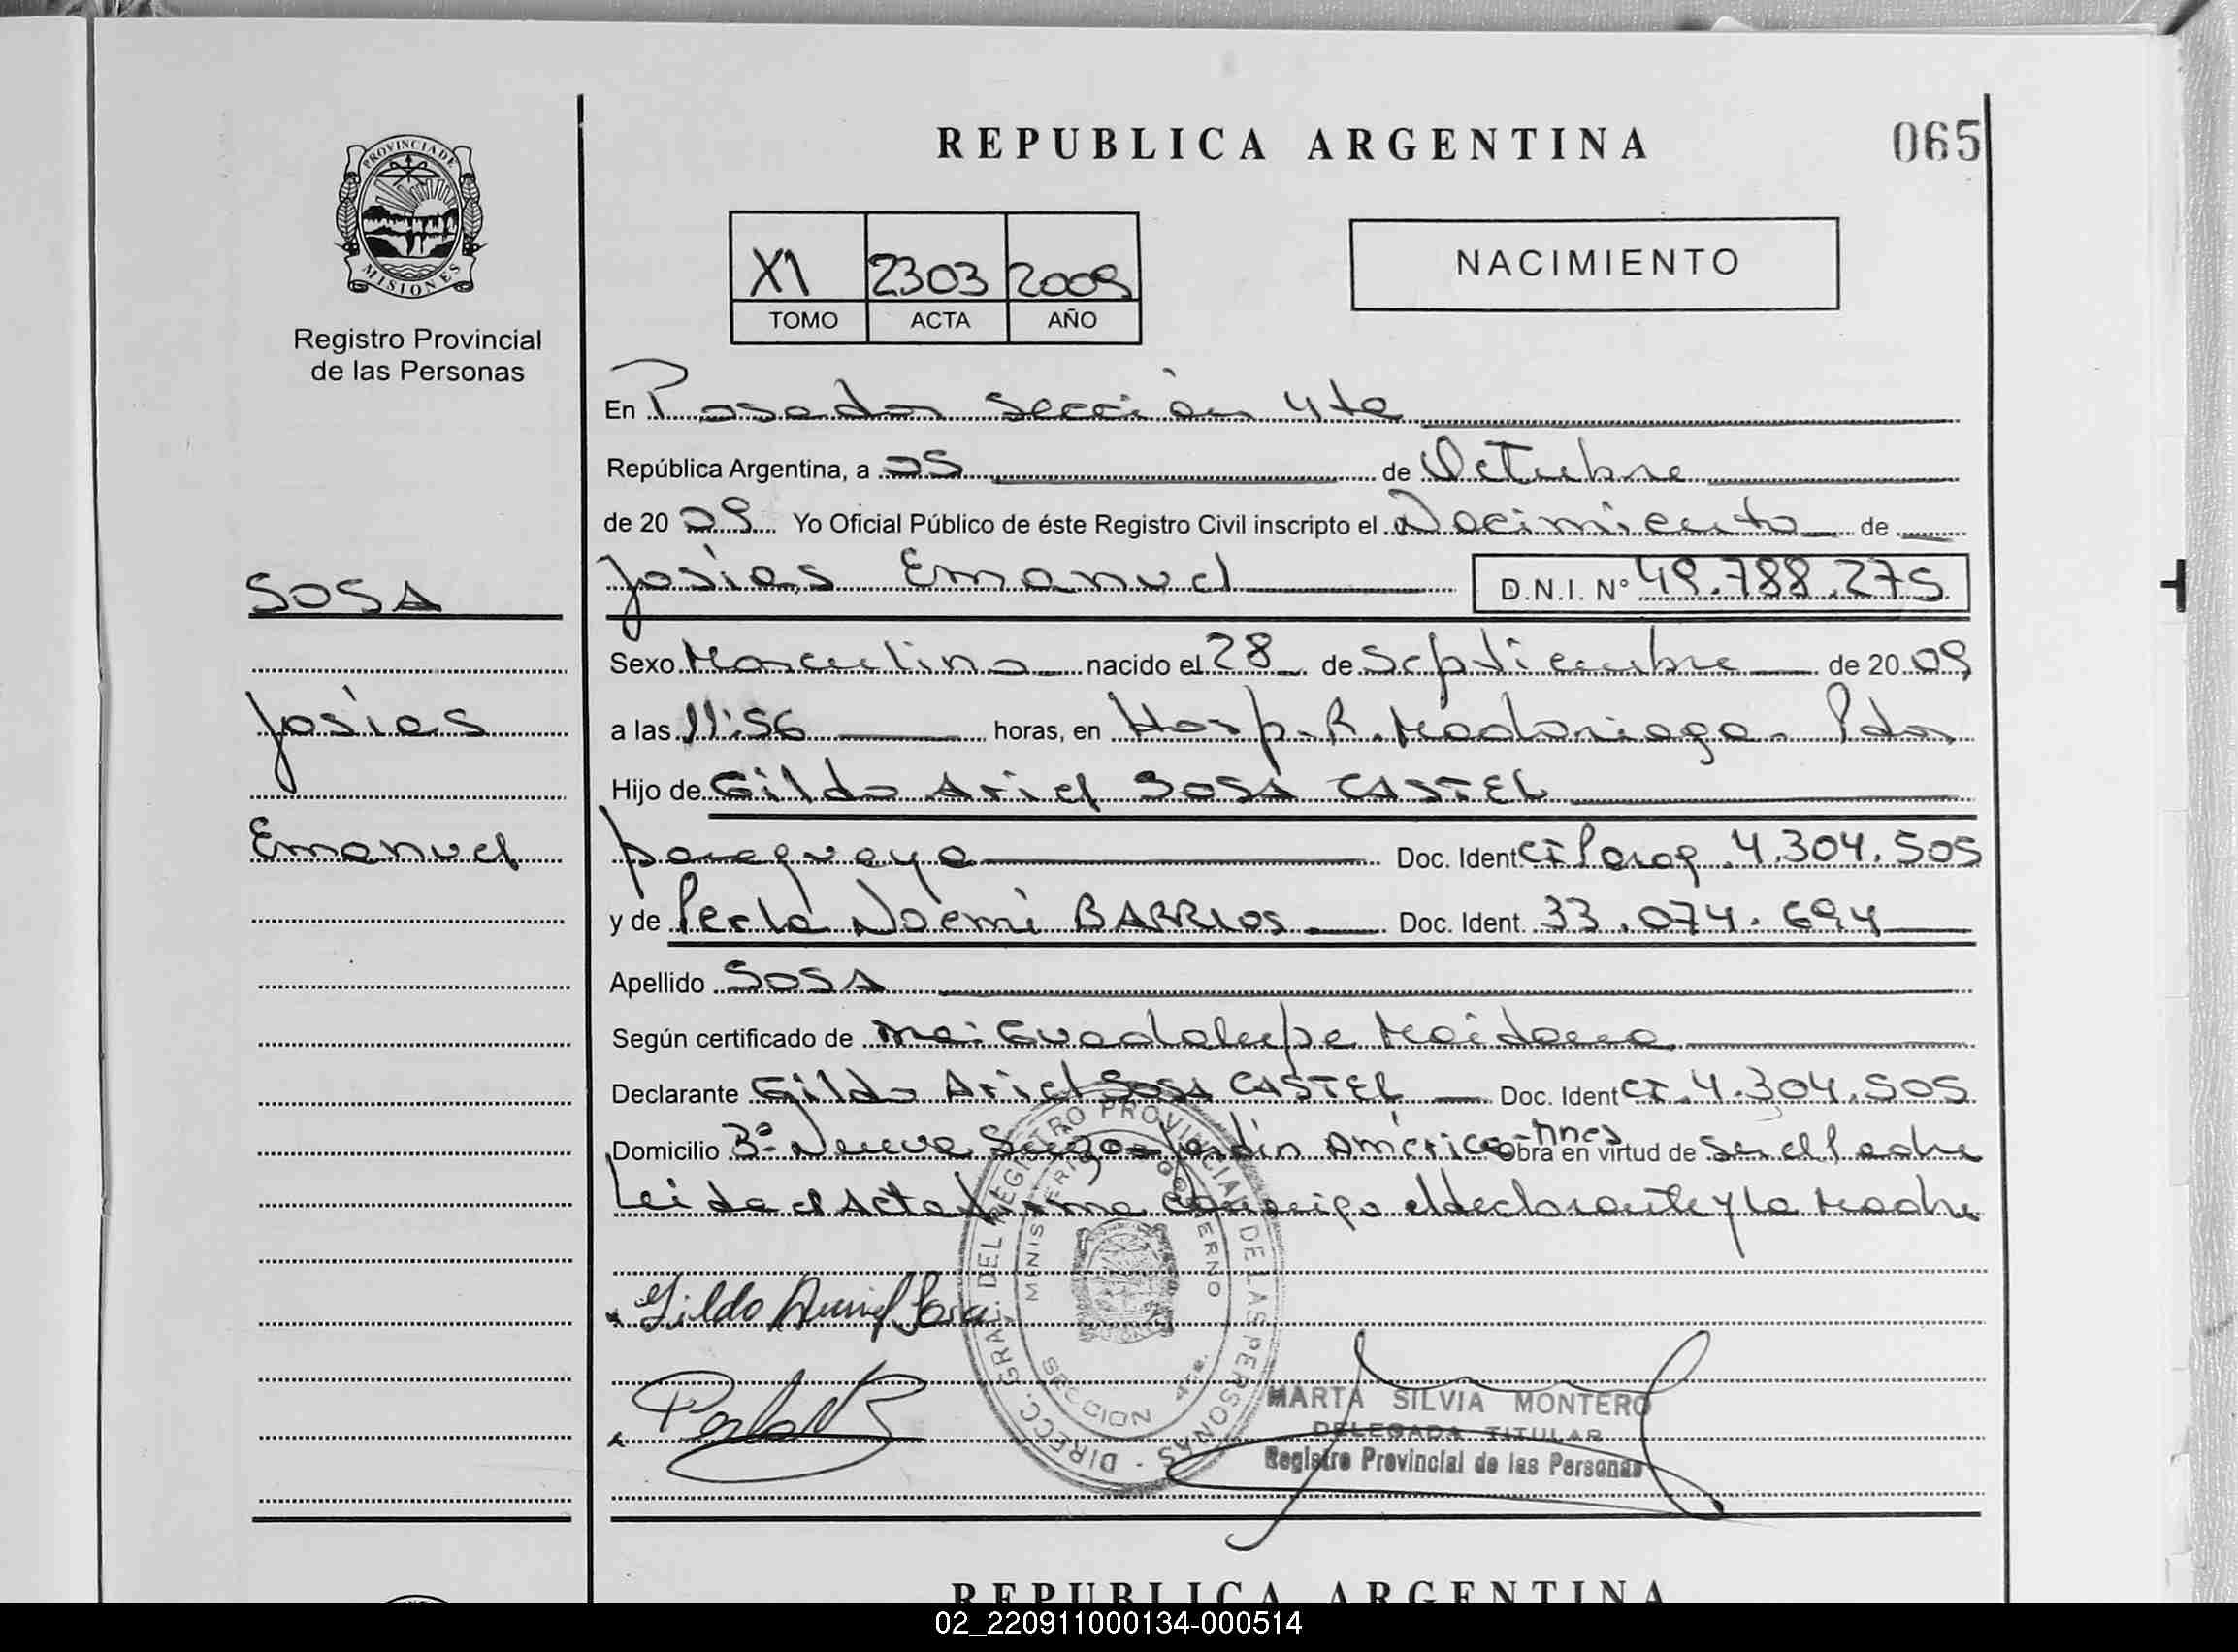 REPUBLICA ARGENTINA
065
PROVINCIA DE
MISIONES
Registro Provincial
de las Personas
X1 2303 2009
TOMO ACTA AÑO
NACIMIENTO
En Posadas Sección 4ta
República Argentina, a 05 de Octubre
de 2009 Yo Oficial Público de éste Registro Civil inscripto el Nacimiento de
SOSA
Josías Emanuel D.N.I. Nº 49.788.275
Sexo Masculino nacido el 28 de Septiembre de 2009
Josías
a las 11:56 horas, en Hosp. R. Madariaga. Pdas
Hijo de Gildo Ariel SOSA CASTEL
Emanuel
paraguaya Doc. Ident. CI Parag. 4.304.505
y de Perla Noemí BARRIOS Doc. Ident. 33.074.694
Apellido SOSA
Según certificado de Guadalupe Maidana
Declarante Gildo Ariel SOSA CASTEL Doc. Ident CI. 4.304.505
Domicilio Bº Jardín América-Mnes obra en virtud de Ser el Padre
Leida el Acta firma conmigo el declarante y la Madre
Gildo Ariel Sosa
Perla N B
DIRECC. GRAL. DEL REGISTRO PROVINCIAL DE LAS PERSONAS
MINISTERIO GOBIERNO
SECCION 4ta.
MARTA SILVIA MONTERO
DELEGADA TITULAR
Registro Provincial de las Personas
REPUBLICA ARGENTINA
02_220911000134-000514